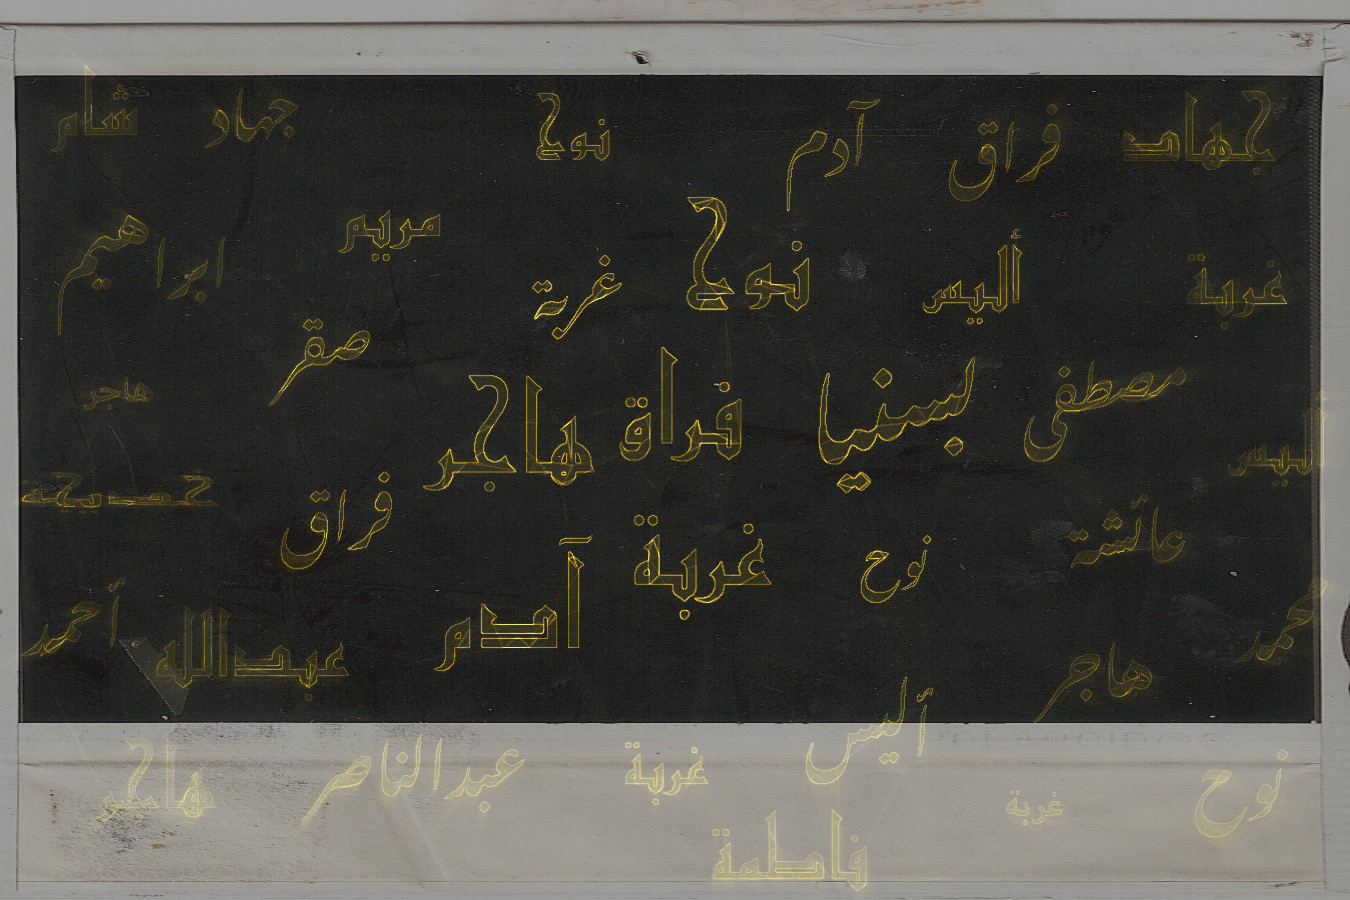 جهاد
فراق
آدم
نوح
جهاد
شام
مريم
ابراهيم
غربة
أليس
نوح
غربة
صقر
مصطفى
بسنيا
فراق
هاجر
هاجر
أليس
خديجة
فراق
عائشة
نوح
غربة
آدم
محمد
أحمد
عبدالله
هاجر
أليس
نوح
غربة
غربة
عبدالناصر
هاجر
فاطمة